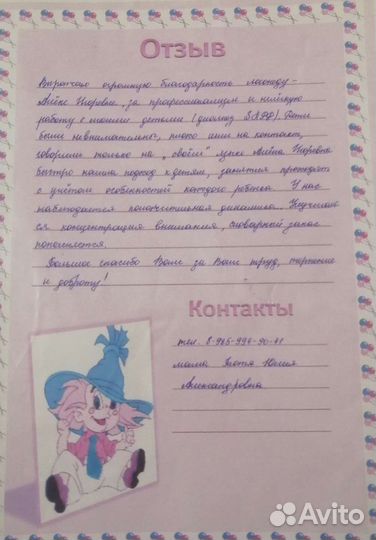 Отзыв
Выражаю огромную благодарность логопеду-
Алёне Игоревне, за профессионализм и нелёгкую
работу с моими детьми (диагноз ЗПРР). Дети
были невнимательны, плохо шли на контакт,
говорили только на „своём" языке. Алёна Игоревна
быстро нашла подход к детям, занятия проходят
с учётом особенностей каждого ребёнка. У нас
наблюдается положительная динамика. Улучшила
ся концентрация внимания, словарный запас
пополняется.
Большое спасибо Вам за Ваш труд, терпение
и доброту!
Контакты
тел. 8-965-996-90-71
мама Юлия
Александровна
Avito